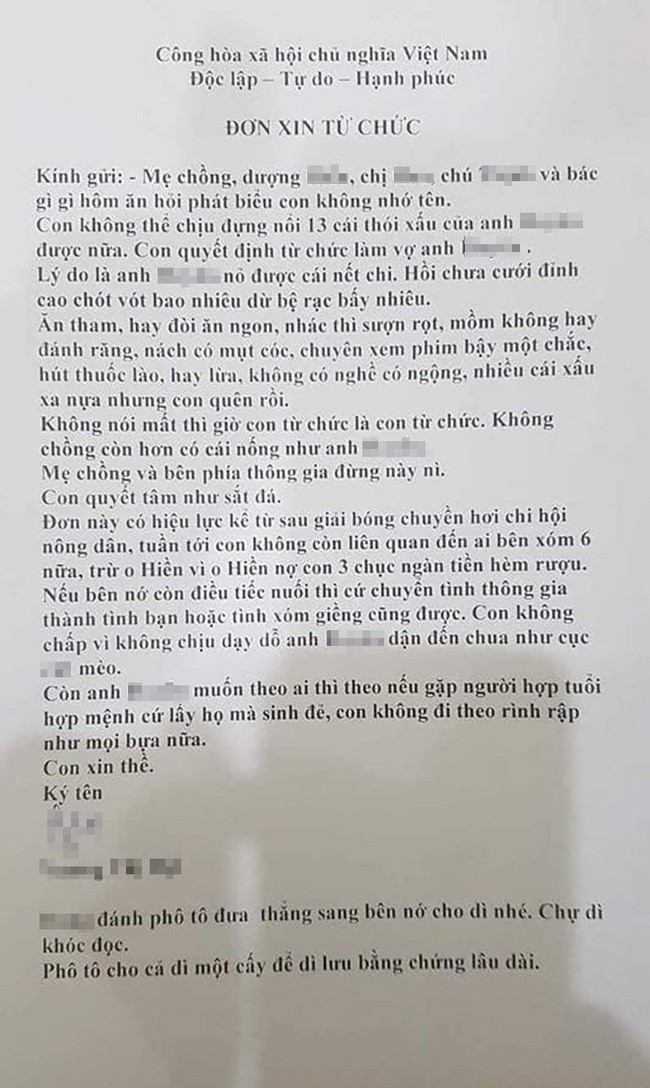 Công hòa xã hội chủ nghĩa Việt Nam
Độc lập – Tự do – Hạnh phúc
ĐƠN XIN TỪ CHỨC
Kính gửi: - Mẹ chồng, dượng , chị , chú và bác
gì gì hôm ăn hỏi phát biểu con không nhớ tên.
Con không thể chịu đựng nổi 13 cái thói xấu của anh
được nữa. Con quyết định từ chức làm vợ anh .
Lý do là anh nỏ được cái nết chi. Hồi chưa cưới đỉnh
cao chót vót bao nhiêu dừ bệ rạc bấy nhiêu.
Ăn tham, hay đòi ăn ngon, nhác thì sượn rọt, mồm không hay
đánh răng, nách có mụt cóc, chuyên xem phim bậy một chắc,
hút thuốc lào, hay lừa, không có nghề có ngộng, nhiều cái xấu
xa nựa nhưng con quên rồi.
Không nói mất thì giờ con từ chức là con từ chức. Không
chồng còn hơn có cái nống như anh
Mẹ chồng và bên phía thông gia đừng này nì.
Con quyết tâm như sắt đá.
Đơn này có hiệu lực kể từ sau giải bóng chuyền hơi chi hội
nông dân, tuần tới con không còn liên quan đến ai bên xóm 6
nữa, trừ o Hiền vì o Hiền nợ con 3 chục ngàn tiền hèm rượu.
Nếu bên nớ còn điều tiếc nuối thì cứ chuyển tình thông gia
thành tình bạn hoặc tình xóm giềng cũng được. Con không
chấp vì không chịu dạy dỗ anh dận đến chua như cục
mèo.
Còn anh muốn theo ai thì theo nếu gặp người hợp tuổi
hợp mệnh cứ lấy họ mà sinh đẻ, con không đi theo rình rập
như mọi bựa nữa.
Con xin thề.
Ký tên
đánh phô tô đưa thẳng sang bên nớ cho dì nhé. Chự dì
khóc đọc.
Phô tô cho cả dì một cấy để dì lưu bằng chứng lâu dài.